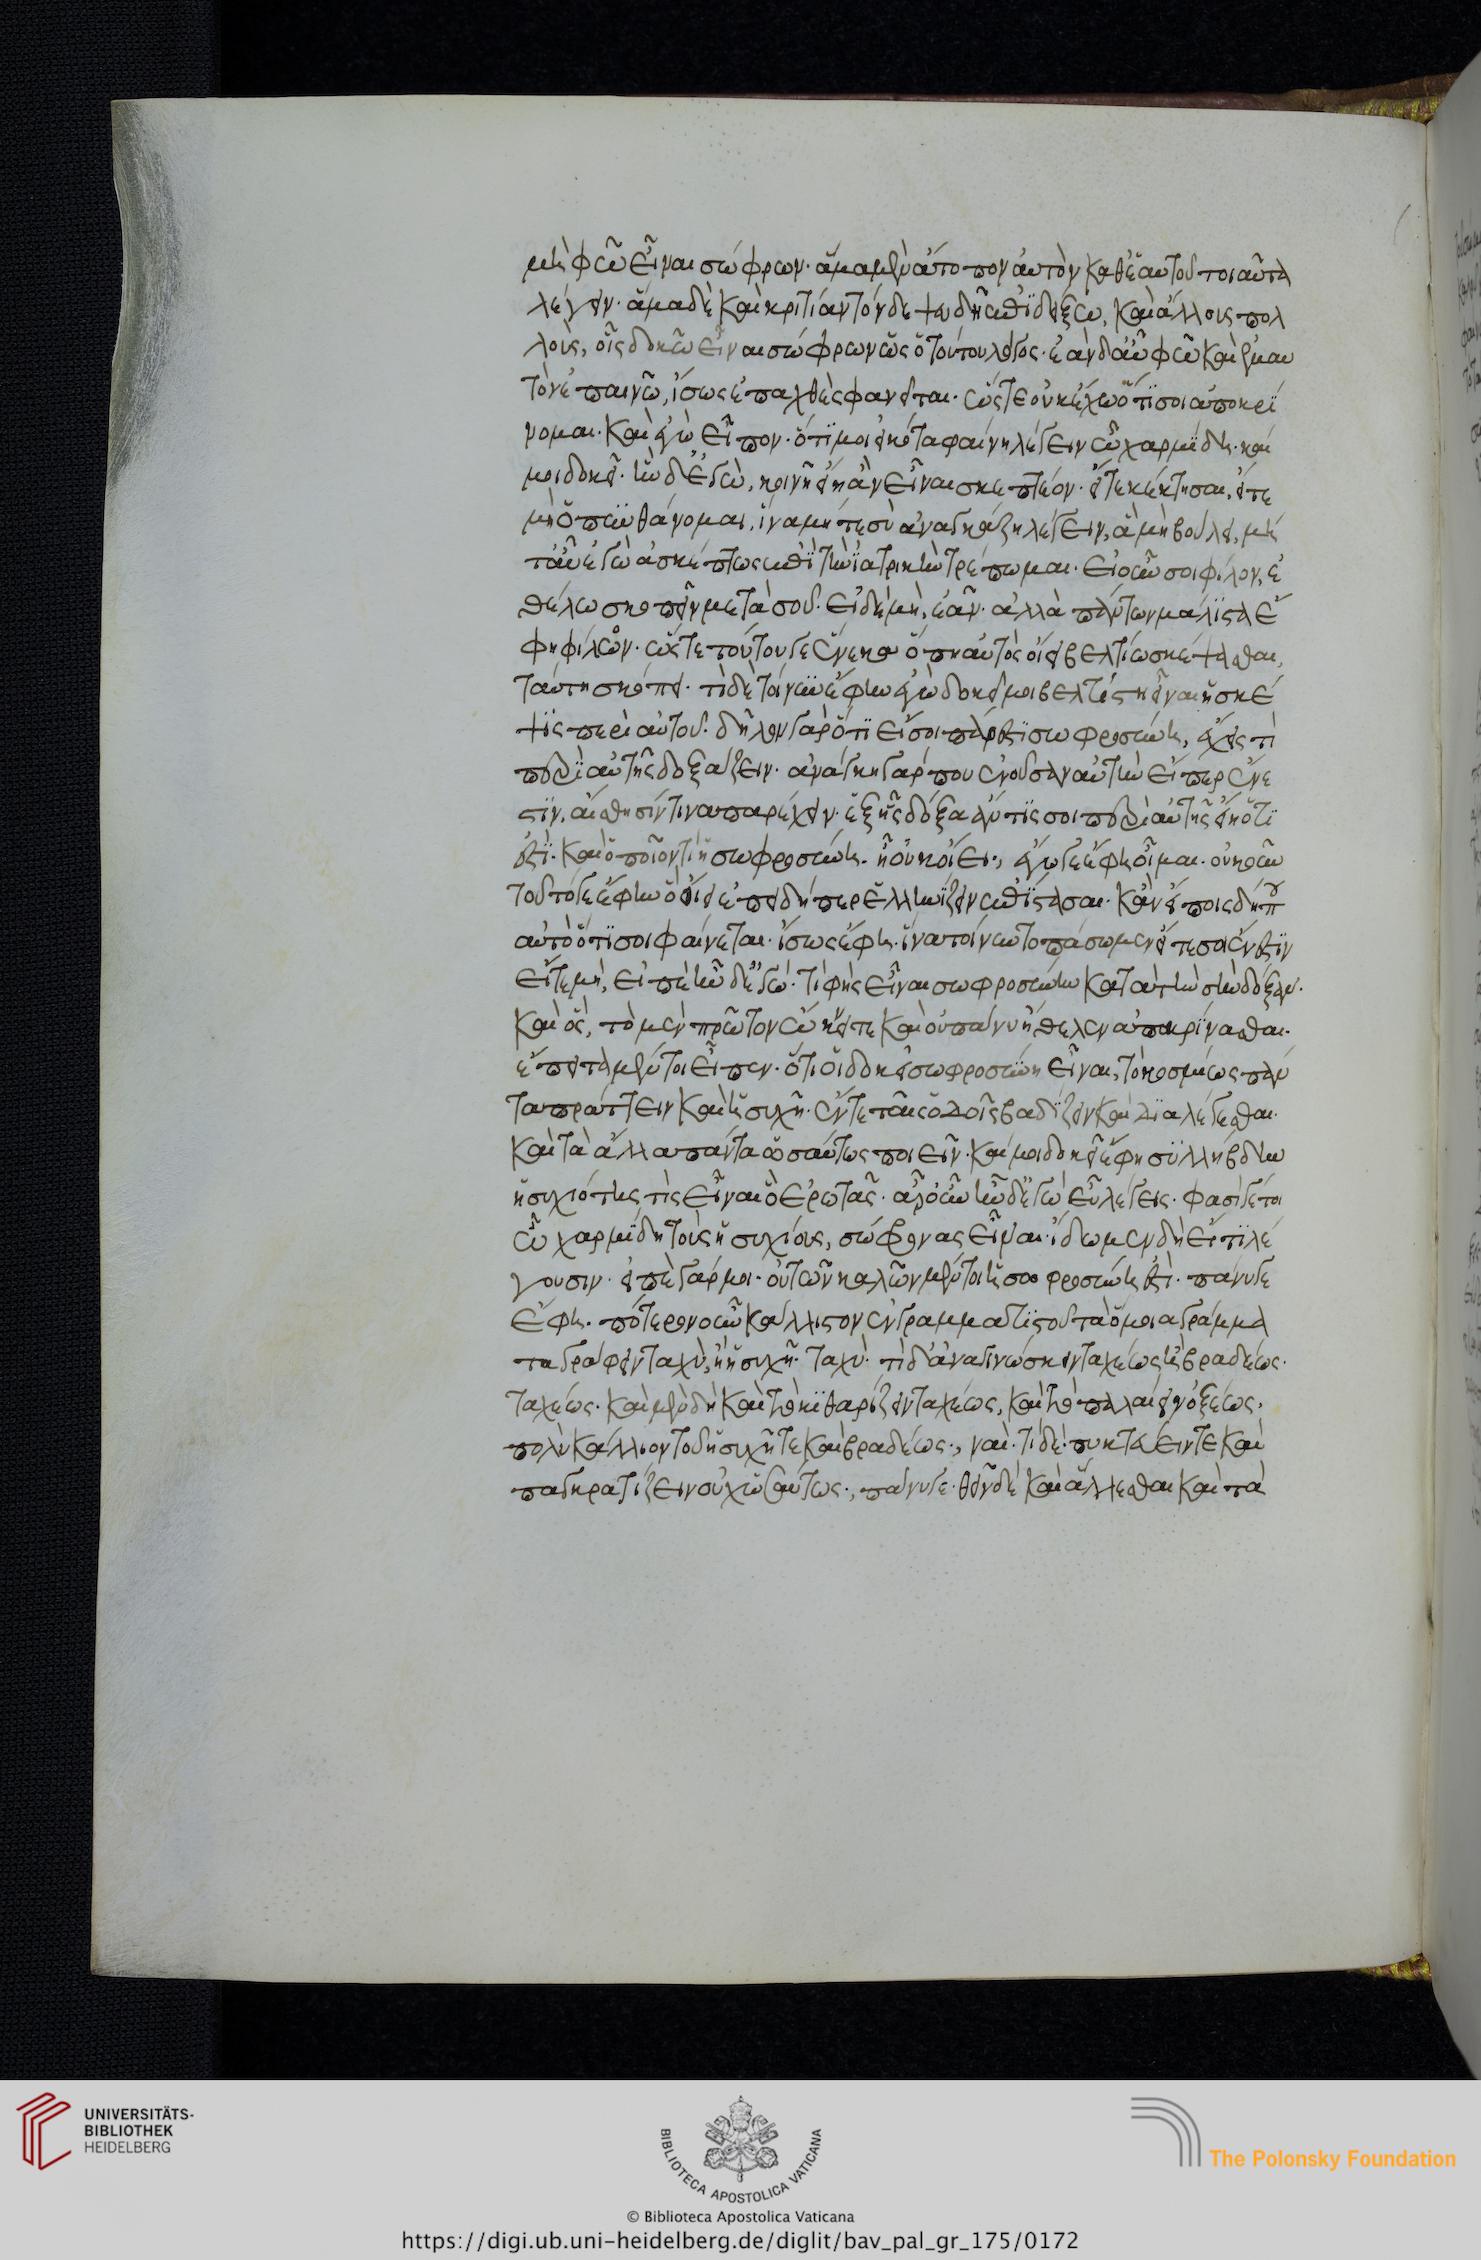 μὴ φῶ εἶναι σώφρων· ἅμα μὲν ἄτοπον αὐτὸν καθ' ἑαυτοῦ τοιαῦτα
λέγειν· ἅμα δὲ καὶ κριτίαν τόνδε ψευδῆ ἐπιδείξω, καὶ ἄλλους πολ
λοὺς, οἷς δοκῶ εἶναι σώφρων ὡς ὁ τούτου λόγος· ἐὰν δ' αὖ φῶ καὶ ἐμαυ
τὸν ἐπαινῶ, ἴσως ἐπαχθὲς φανεῖται· ὥστε οὐκ ἔχω ὅτι σοι ἀποκρί
νομαι· καὶ ἐγὼ εἶπον· ὅτι μοι εἰκότα φαίνῃ λέγειν ὦ χαρμίδη· καί
μοι δοκεῖ· ἦν δ' ἐγὼ, κοινῇ ἂν εἶναι σκεπτέον· εἴτε κέκτησαι, εἴτε
μὴ ὃ πυνθάνομαι, ἵνα μήτε σὺ ἀναγκάζῃ λέγειν, ἃ μὴ βούλει, μή
τ' αὖ ἐγὼ ἀσκέπτως ἐπὶ τὴν ἰατρικὴν τρέπωμαι· εἰ οὖν σοι φίλον, ἐ
θέλω σκοπεῖν μετὰ σοῦ· εἰ δὲ μὴ, ἐᾶν· ἀλλὰ πάντων μάλιστα ἔ
φη φίλον· ὥστε τούτου γε ἕνεκα ὅπῃ αὐτὸς οἴει βέλτιω σκέψασθαι,
ταύτῃ σκόπει· τῇδε τοίνυν ἔφην ἐγὼ δοκεῖ μοι βελτίστη εἶναι ἡ σκέ
ψις περὶ αὐτοῦ· δῆλον γὰρ ὅτι εἴ σοι πάρεστι σωφροσύνη, ἔχεις τὶ
περὶ αὐτῆς δοξάζειν· ἀνάγκη γάρ που ἐνοῦσαν αὐτὴν εἴπερ ἔνε
στιν, αἴσθησίν τινα παρέχειν· ἐξ ἧς δόξα ἄν τίς σοι περὶ αὐτῆς εἴη ὅτι
ἐστὶ· καὶ ὁποῖόν τι ἡ σωφροσύνη· ἢ οὐκ οἴει·, ἔγωγε ἔφη οἶμαι· οὐκοῦν
τοῦτό γε ἔφην ὃ οἴει ἐπειδήπερ ἑλληνίζειν ἐπίστασαι· κἂν εἴποις δήπου
αὐτὸ ὅτι σοι φαίνεται· ἴσως ἔφη· ἵνα τοίνυν τοπάσωμεν εἴτε σοι ἔνεστιν
εἴτε μή, εἰπὲ ἦν δ' ἐγώ· τί φῂς εἶναι σωφροσύνην κατὰ τὴν σὴν δόξαν·
καὶ ὃς, τὸ μὲν πρῶτον ὤκνει τε καὶ οὐ πάνυ ἤθελεν ἀποκρίνασθαι·
ἔπειτα μέντοι εἶπεν· ὅτι οἷ δοκεῖ σωφροσύνη εἶναι, τὸ κοσμίως πάν
τα πράττειν καὶ ἡσυχῇ· ἔν τε ταῖς ὁδοῖς βαδίζειν καὶ διαλέγεσθαι·
καὶ τὰ ἄλλα πάντα ὡσαύτως ποιεῖν· καί μοι δοκεῖ ἔφη συλλήβδην
ἡσυχιότης τὶς εἶναι ὃ ἐρωτᾷς· ἆρ' οὖν ἦν δ' ἐγὼ εὖ λέγεις· φασί γέ τοι
ὦ χαρμίδη τοὺς ἡσυχίους, σώφρονας εἶναι· ἴδωμεν δὴ εἴ τι λέ
γουσιν· εἰπὲ γάρ μοι· οὐ τῶν καλῶν μέντοι ἡ σωφροσύνη ἐστὶ· πάνυ γε
ἔφη· πότερον οὖν κάλλιστον ἐν γραμματιστοῦ τὰ ὅμοια γράμμα
τα γράφειν ταχὺ, ἢ ἡσυχῇ· ταχὺ· τὶ δ' ἀναγινώσκειν ταχέως ἢ βραδέως·
ταχέως· καὶ μὲν δὴ καὶ τὸ κιθαρίζειν ταχέως, καὶ τὸ παλαίειν ὀξέως,
πολὺ κάλλιον τοῦ ἡσυχῆ τε καὶ βραδέως·, ναὶ· τί δὲ· πυκτεύειν τε καὶ
παγκρατιάζειν οὐχ ὡσαύτως·, πάνυ γε· θεῖν δὲ καὶ ἅλλεσθαι καὶ τὰ
UNIVERSITÄTS-
BIBLIOTHEK
HEIDELBERG
BIBLIOTECA APOSTOLICA VATICANA
The Polonsky Foundation
© Biblioteca Apostolica Vaticana
https://digi.ub.uni-heidelberg.de/diglit/bav_pal_gr_175/0172